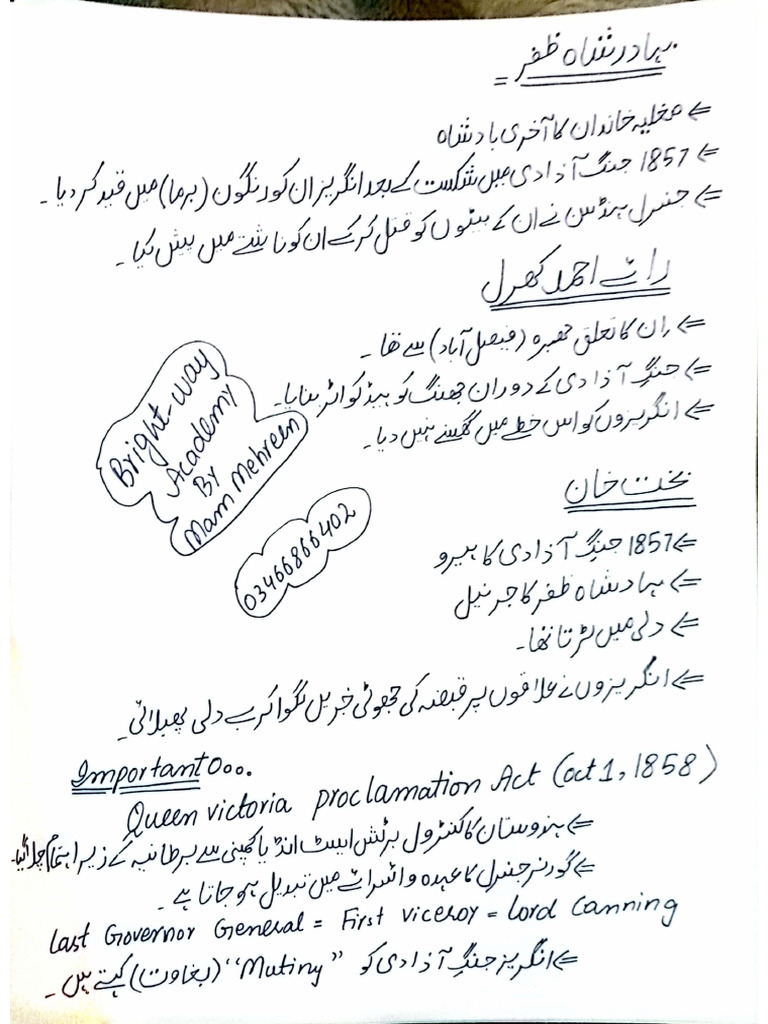 بہادر شاہ ظفر =
⇐ مغلیہ خاندان کا آخری بادشاہ
⇐ 1857 جنگ آزادی میں شکست کے بعد انگریز ان کو رنگون (برما) میں قید کر دیا۔
⇐ جنرل ہڈسن نے ان کے بیٹوں کو قتل کر کے ان کو ناشتے میں پیش کیا۔
رائے احمد کھرل
⇐ ان کا تعلق جھمرہ (فیصل آباد) سے تھا۔
⇐ جنگِ آزادی کے دوران جھنگ کو ہیڈ کواٹر بنایا۔
⇐ انگریزوں کو اس خطے میں گھسنے نہیں دیا۔
Bright-way
Academy
By
Mam Mehreen
03466866402
بخت خان
⇐ 1857 جنگِ آزادی کا ہیرو
⇐ بہادر شاہ ظفر کا جرنیل
⇐ دلی میں لڑتا تھا۔
⇐ انگریزوں نے علاقوں پر قبضہ کی جھوٹی خبریں لگوا کر بے دلی پھیلائی۔
Important000.
Queen victoria proclamation Act (oct 1, 1858)
⇐ ہندوستان کا کنٹرول برٹش ایسٹ انڈیا کمپنی سے برطانیہ کے زیرِ اہتمام چلا گیا۔
⇐ گورنر جنرل کا عہدہ وائسرائے میں تبدیل ہو جاتا ہے۔
Last Governor General = First viceroy = Lord Canning
⇐ انگریز جنگِ آزادی کو "Mutiny" (بغاوت) کہتے ہیں۔